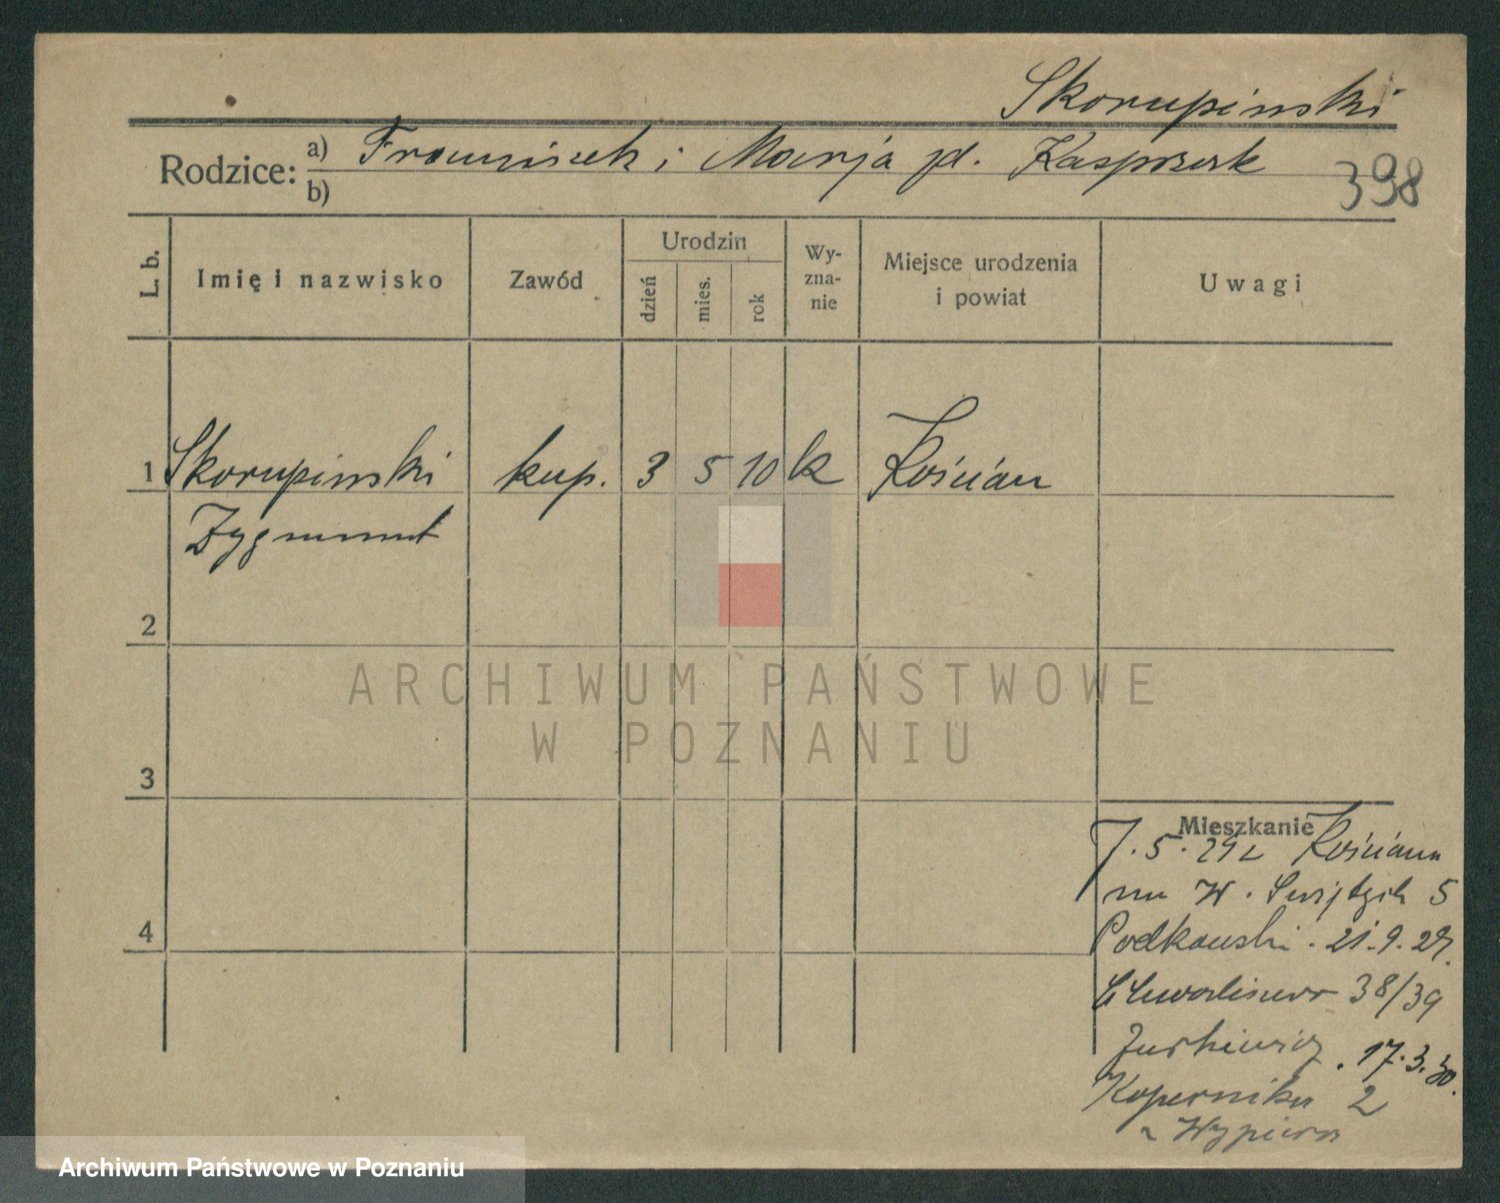 Skorupinski
Rodzice: a) Franciszek i Marja zd. Kasprzak
b)
398
L. b.
Imię i nazwisko
Zawód
Urodzin
dzień
mies.
rok
Wy-
zna-
nie
Miejsce urodzenia
i powiat
Uwagi
1 Skorupinski kup. 3 5 10 k Kościan
Zygmunt
2
ARCHIWUM PAŃSTWOWE
W POZNANIU
3
Mieszkanie
7. 5. 29 z Kościana
na W. 5
4
Podkowski. 21.9.29.
38/39
Jurkiewicz . 17.3.30.
Kopernika 2
Archiwum Państwowe w Poznaniu